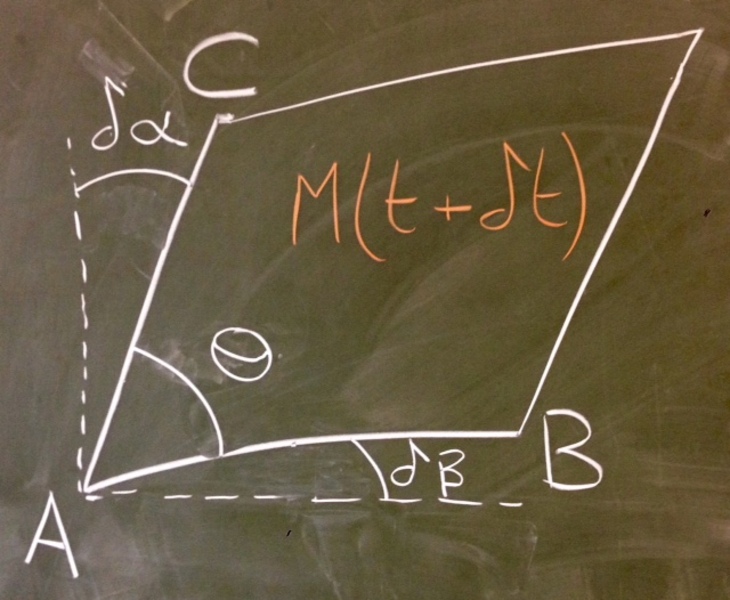 C
δα
M(t+δt)
θ
B
δβ
A